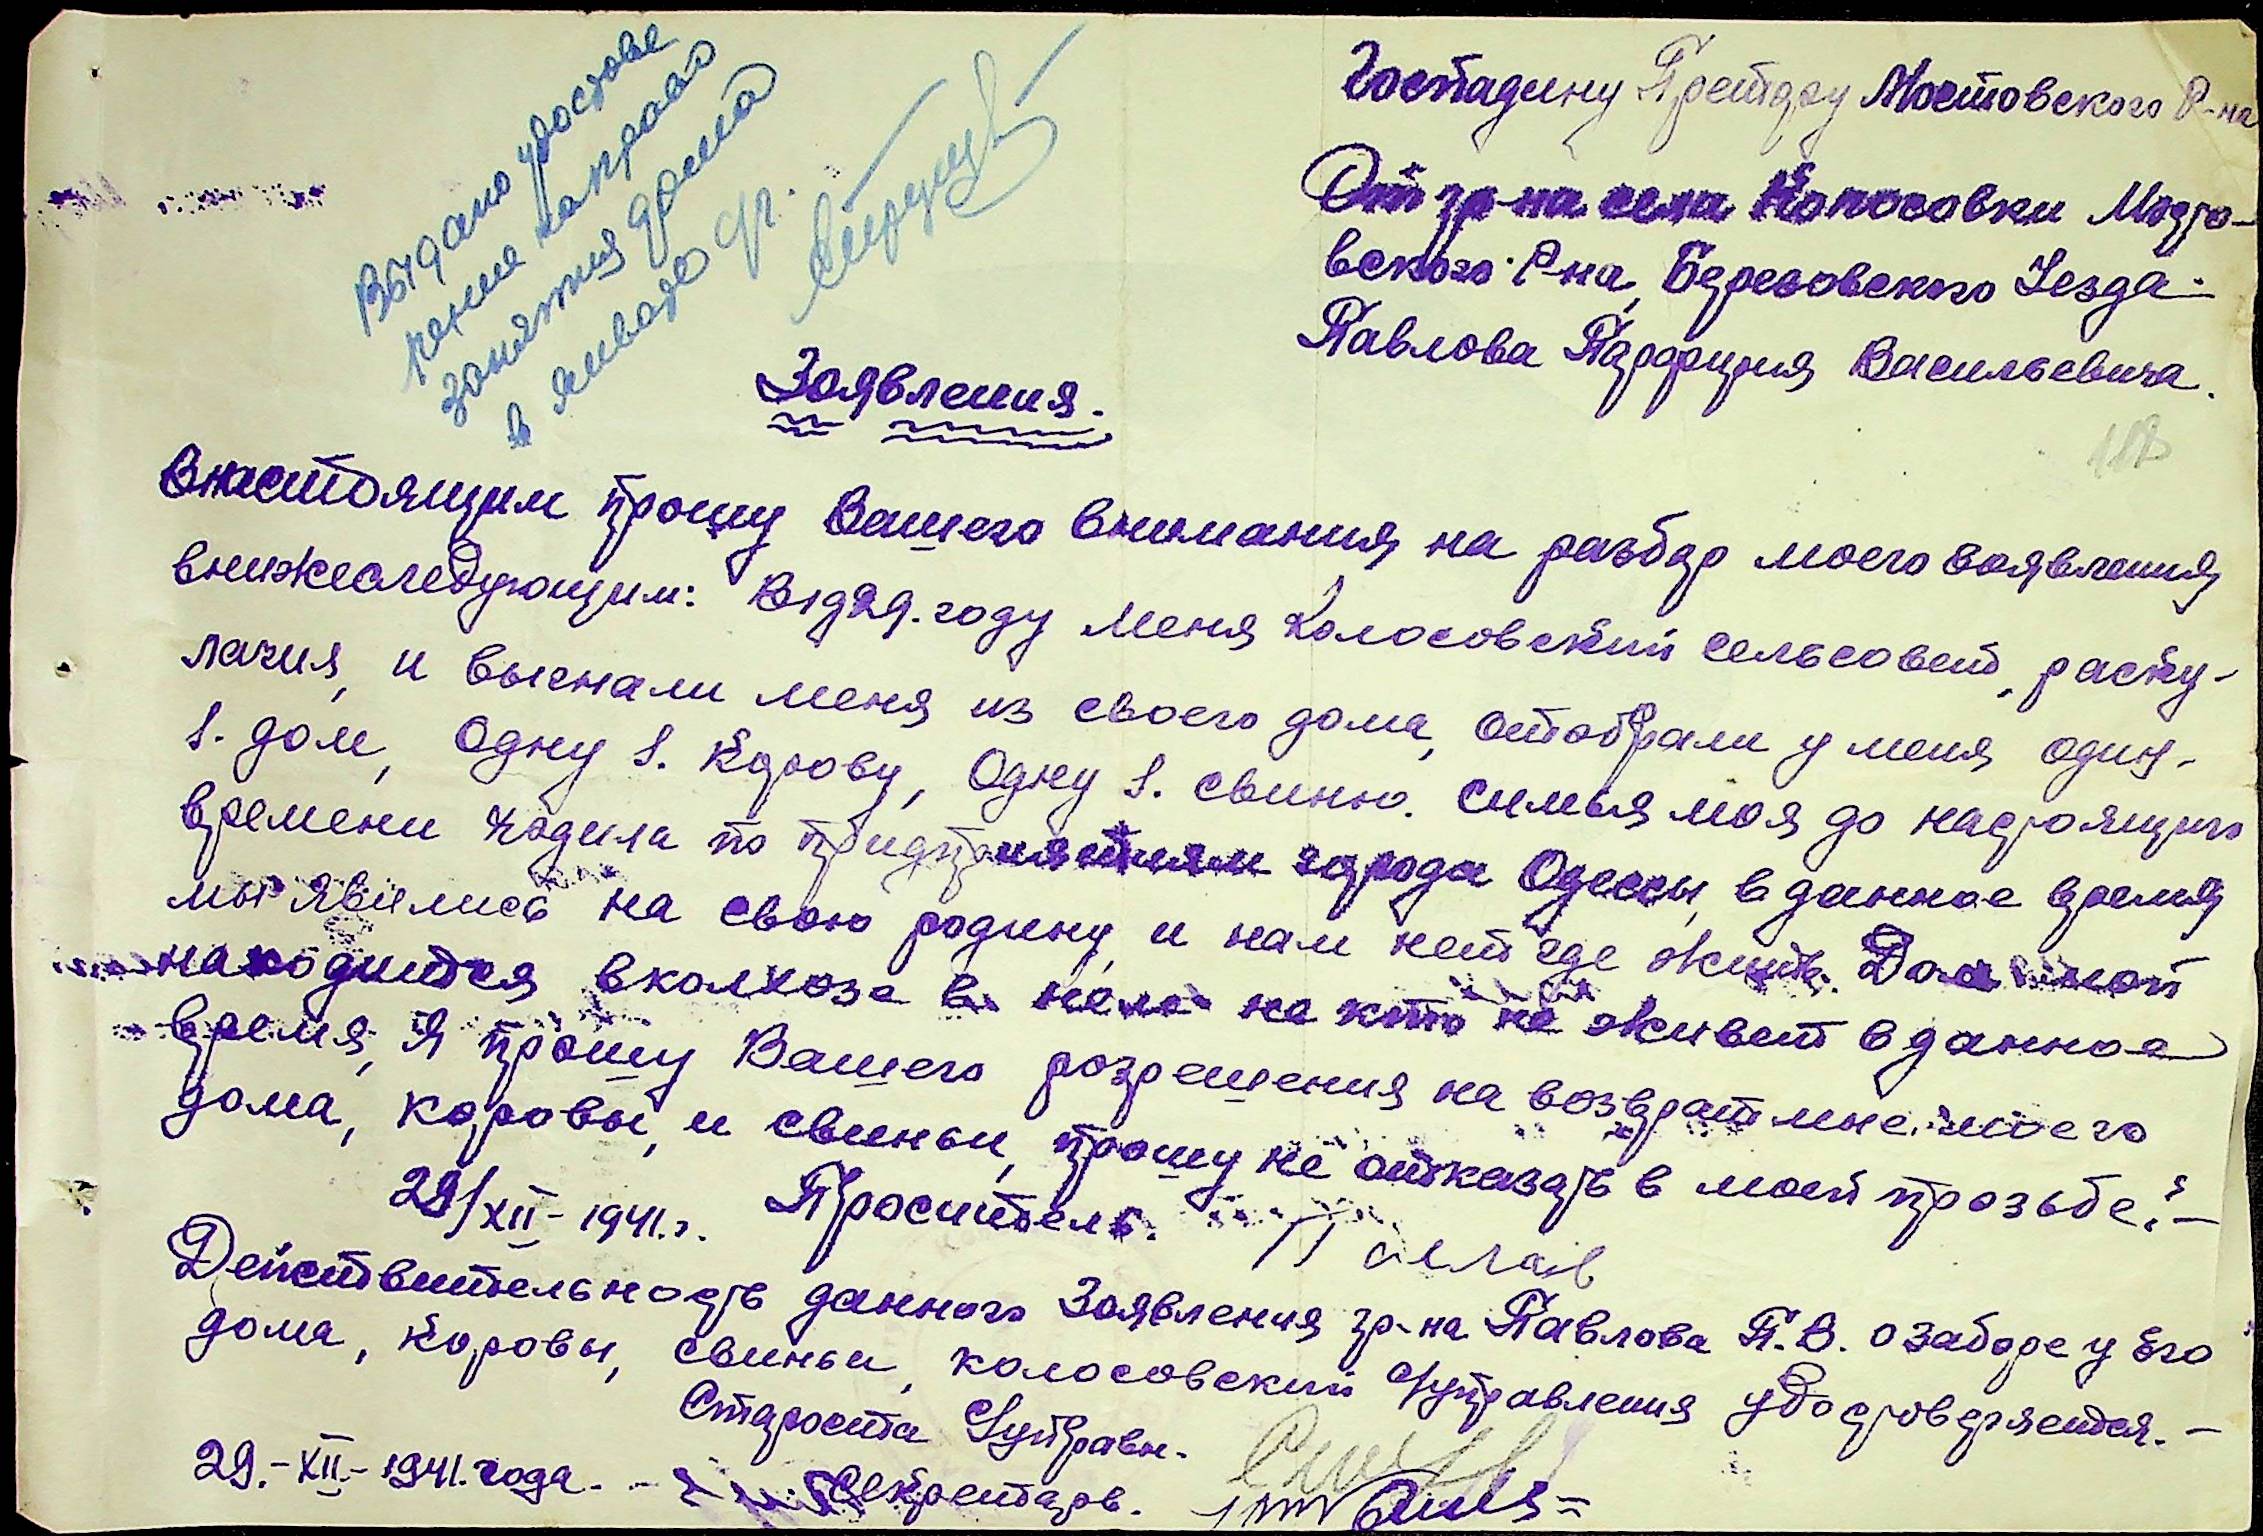 Господину Претору Мостовского Р-на
От гр-на села Колосовки Мосто-
вского Р-на, Березовского Уезда-
Павлова Парфения Васильевича.
Выдано удостове
рение на право
занятия дома
в январе
Заявления.
Внастоящим прошу Вашего внимания на разбор моего заявления
внижеследующим: В 1929. году меня Колосовский сельсовет, раску-
лачия, и выгнали меня из своего дома, отобрали у меня один-
1. дом, Одну 1. Корову, Одну 1. свиню. симья моя до настоящиго
времени ходила по придприятиям города Одессы, в данное время
мы явились на свою родину, и нам нет где жить. Дом мой
находится вколхозе в нём не кто не живет в данное
время, Я прошу Вашего розрешения на возврат мне моего
дома, коровы, и свиньи, прошу не отказать в моей прозьбе.-
29/XII-1941.г. Проситель. Павлов
Действительность данного Заявления гр-на Павлова П.В. о заборе у Его
дома, Коровы, свиньи, колосовский Управления удостоверяется.-
Староста Управл.
29.-XII-1941. года. - Секретарь.